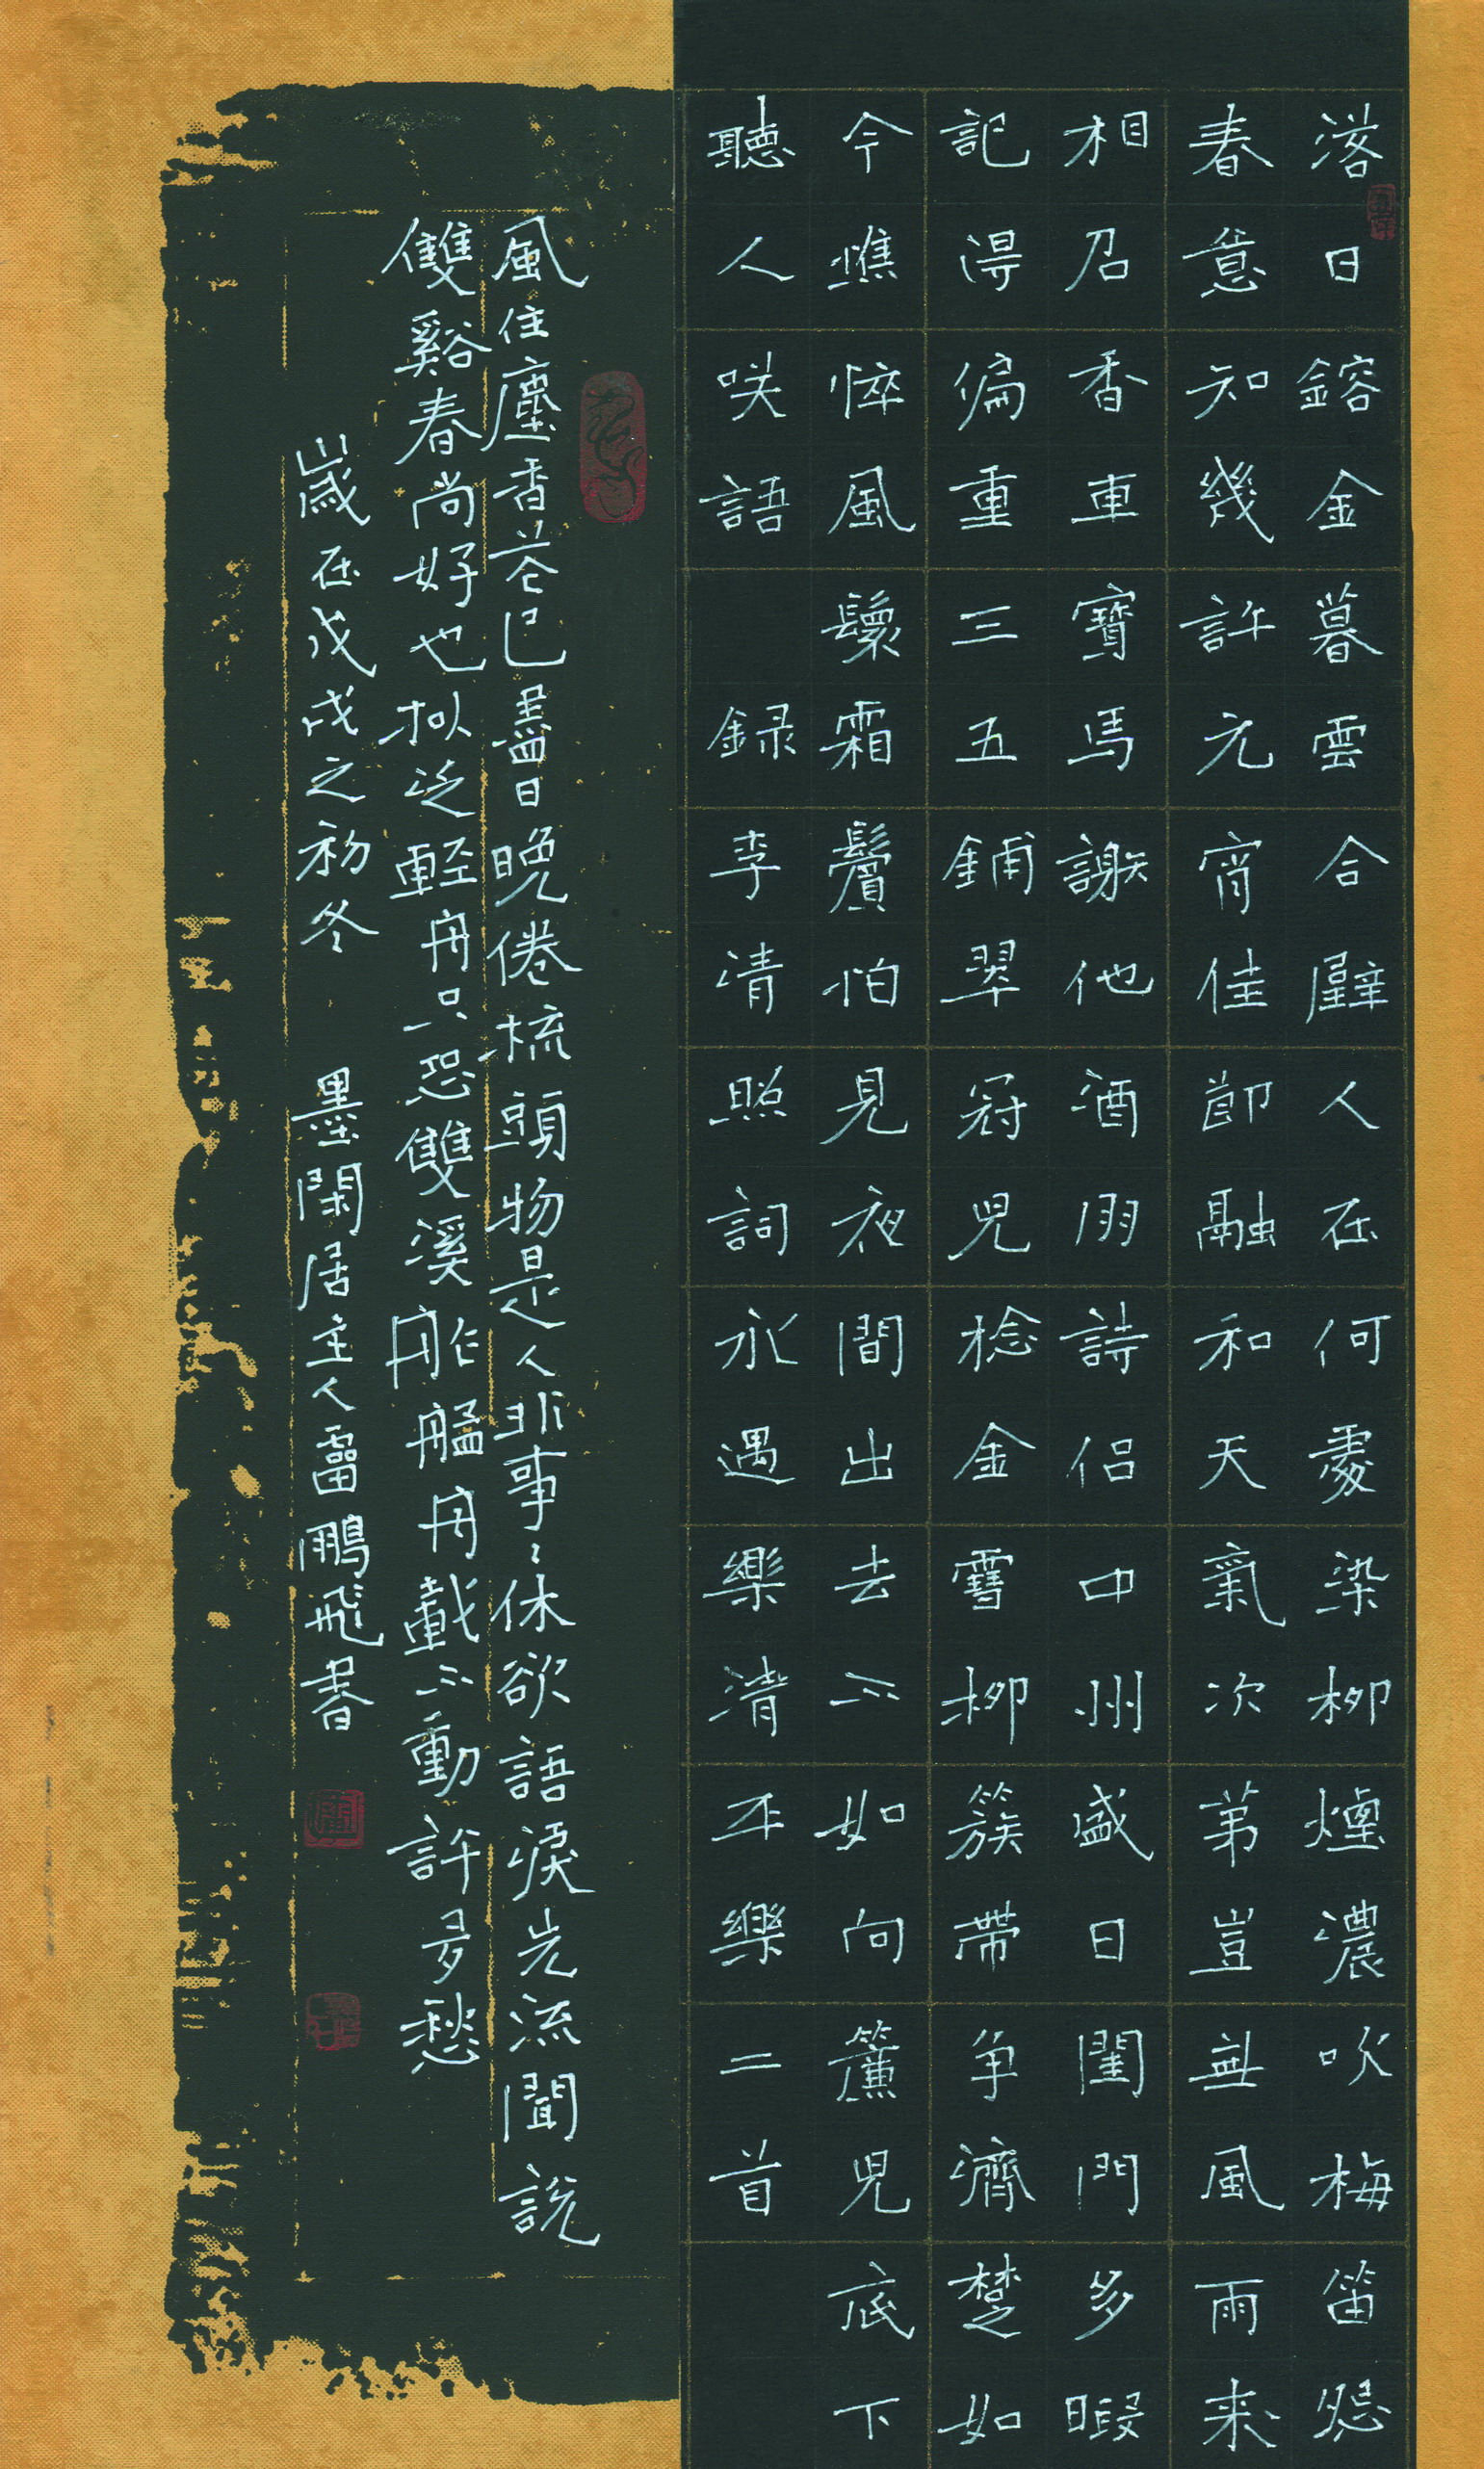 落日鎔金暮雲合璧人在何處染柳煙濃吹梅笛怨
春意知幾許元宵佳節融和天氣次第豈無風雨来
相召香車寶馬謝他酒朋詩侶中州盛日閨門多暇
記得偏重三五鋪翠冠兒捻金雪柳簇帶爭濟楚如
今憔悴風鬟霜鬢怕見夜間出去不如向簾兒底下
聽人咲語 録李清照詞永遇樂清平樂二首
風住塵香花已盡日晚倦梳頭物是人非事〻休欲語淚先流聞説
雙谿春尚好也拟泛輕舟只恐雙溪舴艋舟載不動許多愁
歲在戊戌之初冬 墨閑居主人雷鵬飛書